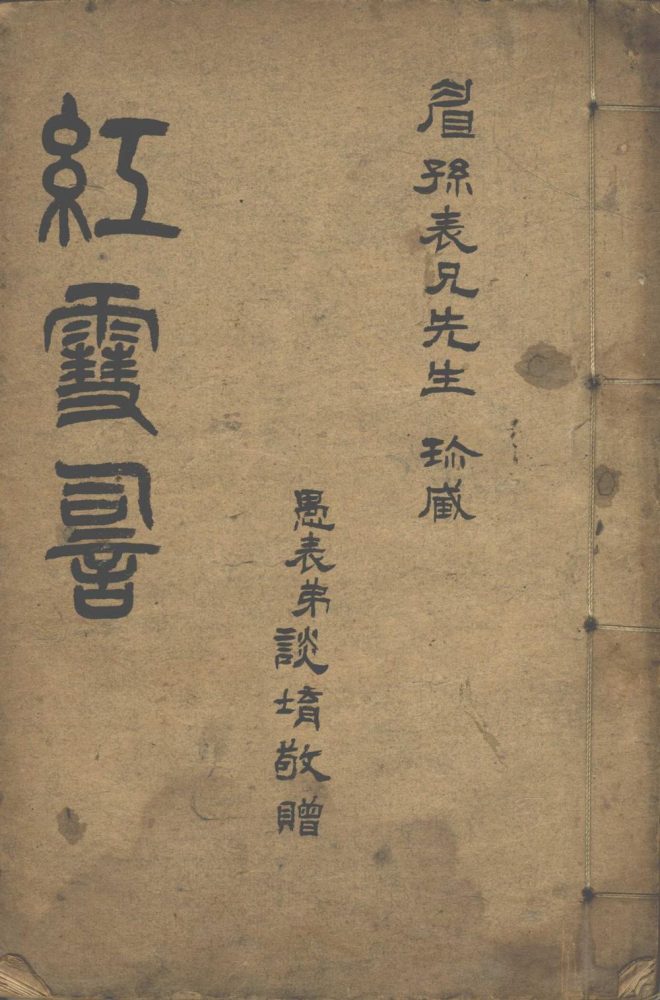 眉孫表兄先生 珍藏
愚表弟談堉敬贈
紅雪䛐